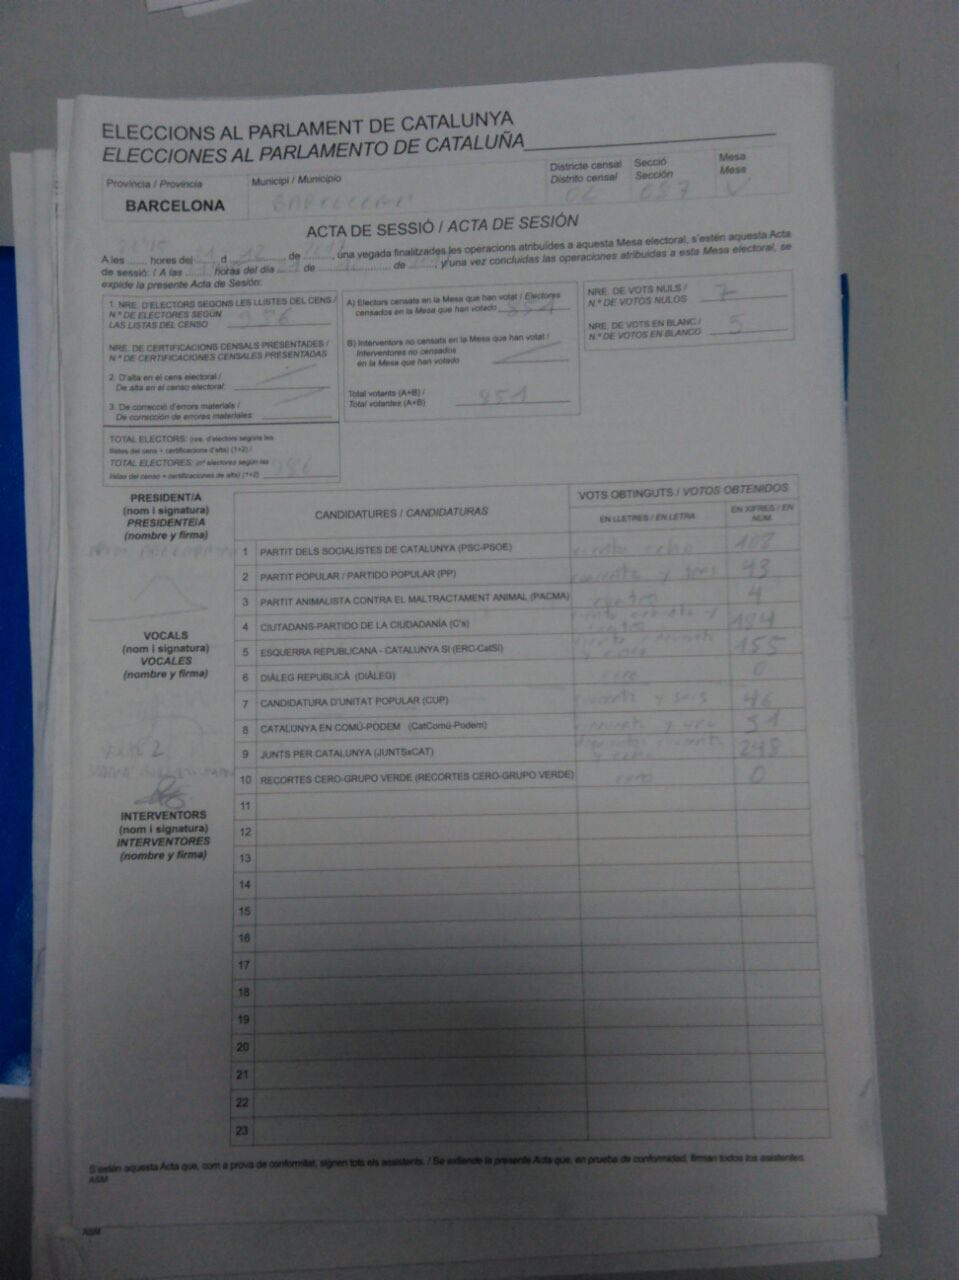 ELECCIONS AL PARLAMENT DE CATALUNYA
ELECCIONES AL PARLAMENTO DE CATALUÑA
Província / Provincia
Municipi / Municipio
Districte censal
Distrito censal
Secció
Sección
Mesa
Mesa
BARCELONA
BARCELONA
02
087
ACTA DE SESSIÓ / ACTA DE SESIÓN
A les hores del d de , una vegada finalitzades les operacions atribuïdes a aquesta Mesa electoral, s'estén aquesta Acta
de sessió: / A las horas del día de de , y una vez concluidas las operaciones atribuidas a esta Mesa electoral, se
expide la presente Acta de Sesión:
1. NRE. D'ELECTORS SEGONS LES LLISTES DEL CENS /
N.º DE ELECTORES SEGÚN
LAS LISTAS DEL CENSO 986
NRE. DE CERTIFICACIONS CENSALS PRESENTADES /
N.º DE CERTIFICACIONES CENSALES PRESENTADAS
2. D'alta en el cens electoral /
De alta en el censo electoral:
3. De correcció d'errors materials /
De corrección de errores materiales:
TOTAL ELECTORS: (nre. d'electors segons les
llistes del cens + certificacions d'alta) (1+2) /
TOTAL ELECTORES: (nº electores según las
listas del censo + certificaciones de alta) (1+2) 986
A) Electors censats en la Mesa que han votat / Electores
censados en la Mesa que han votado 851
B) Interventors no censats en la Mesa que han votat /
Interventores no censados
en la Mesa que han votado
Total votants (A+B) /
Total votantes (A+B) 851
NRE. DE VOTS NULS /
N.º DE VOTOS NULOS 7
NRE. DE VOTS EN BLANC /
N.º DE VOTOS EN BLANCO 5
PRESIDENT/A
(nom i signatura)
PRESIDENTE/A
(nombre y firma)
VOCALS
(nom i signatura)
VOCALES
(nombre y firma)
INTERVENTORS
(nom i signatura)
INTERVENTORES
(nombre y firma)
CANDIDATURES / CANDIDATURAS
VOTS OBTINGUTS / VOTOS OBTENIDOS
EN LLETRES / EN LETRA
EN XIFRES / EN NÚM.
1 PARTIT DELS SOCIALISTES DE CATALUNYA (PSC-PSOE) ciento ocho 108
2 PARTIT POPULAR / PARTIDO POPULAR (PP) 43
3 PARTIT ANIMALISTA CONTRA EL MALTRACTAMENT ANIMAL (PACMA) cuatro 4
4 CIUTADANS-PARTIDO DE LA CIUDADANÍA (C's) 184
5 ESQUERRA REPUBLICANA - CATALUNYA SÍ (ERC-CatSí) 155
6 DIÀLEG REPUBLICÀ (DIÀLEG) cero 0
7 CANDIDATURA D'UNITAT POPULAR (CUP) cuarenta y seis 46
8 CATALUNYA EN COMÚ-PODEM (CatComú-Podem) cincuenta y uno 51
9 JUNTS PER CATALUNYA (JUNTSxCAT) 248
10 RECORTES CERO-GRUPO VERDE (RECORTES CERO-GRUPO VERDE) cero 0
11
12
13
14
15
16
17
18
19
20
21
22
23
S'estén aquesta Acta que, com a prova de conformitat, signen tots els assistents. / Se extiende la presente Acta que, en prueba de conformidad, firman todos los asistentes.
ASM
ASM